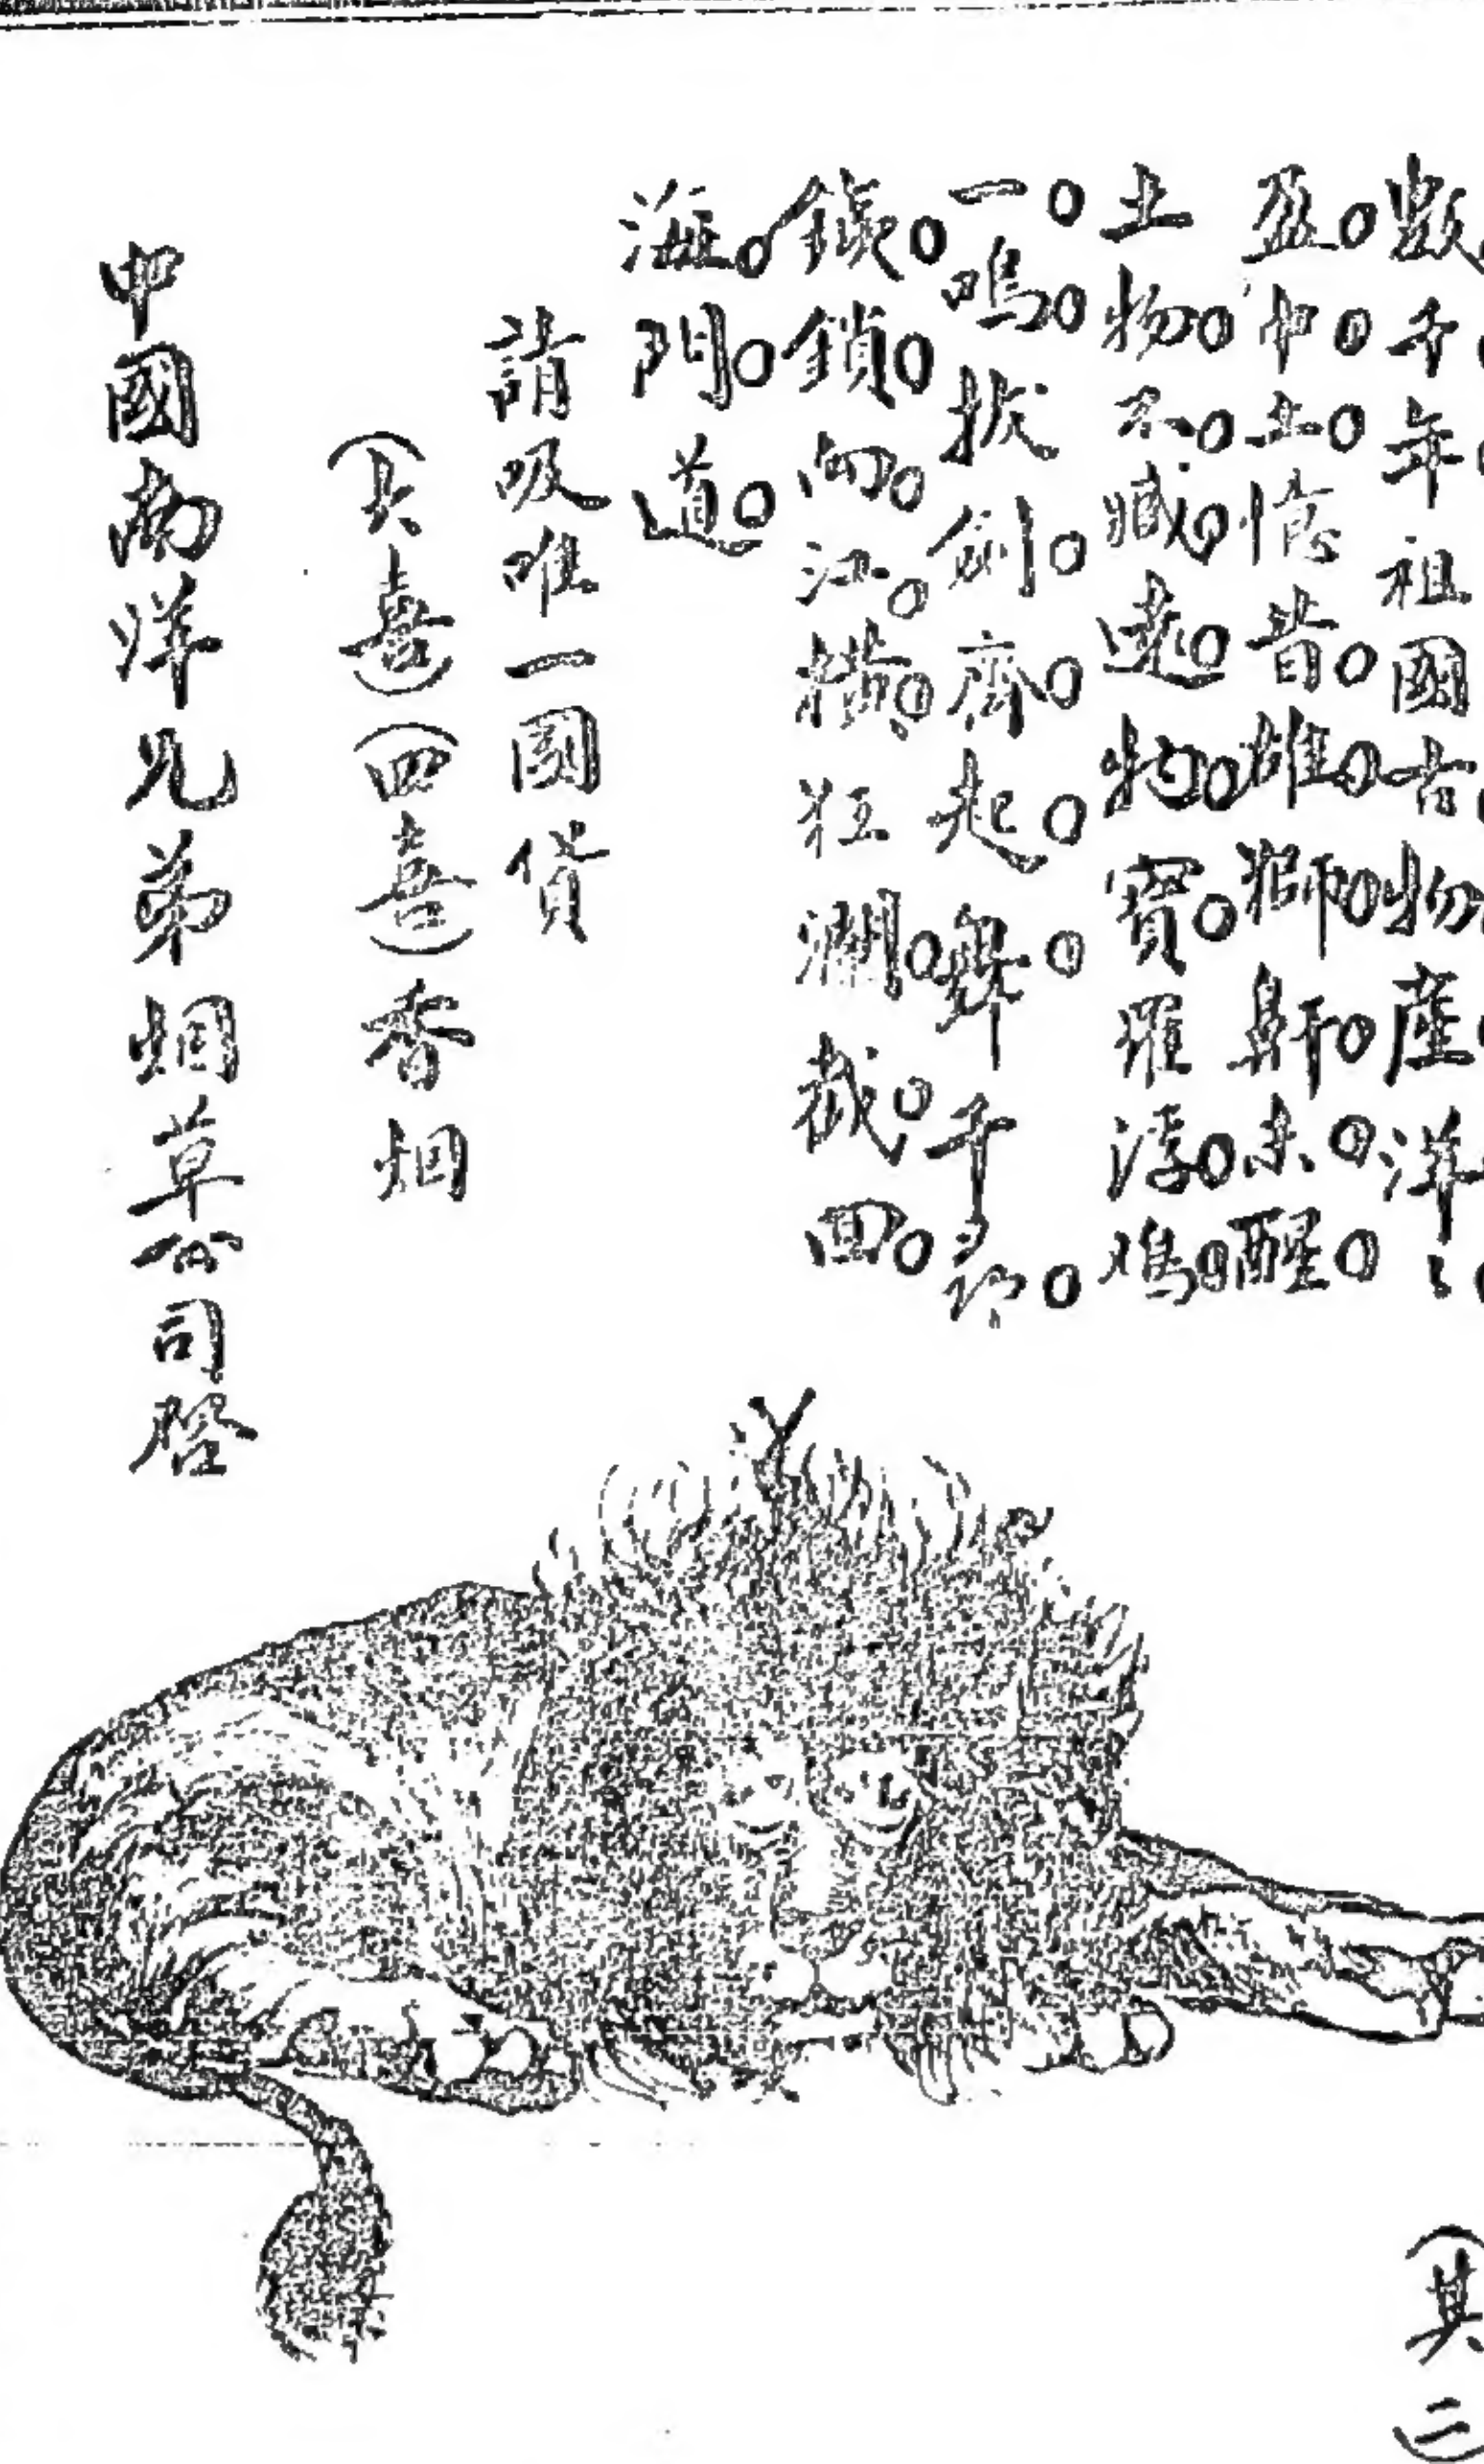 數千年祖國古物產洋〻
盈中土憶昔雄獅鼾未醒
土物不臧遠物寶羅浮鸡
一鳴拔劍齊起舞千尋
鐵鎖向江橫狂瀾截回
海門道
請吸唯一國貨
(大喜)(四喜)香烟
中國南洋兄弟烟草公司啓
(其二)